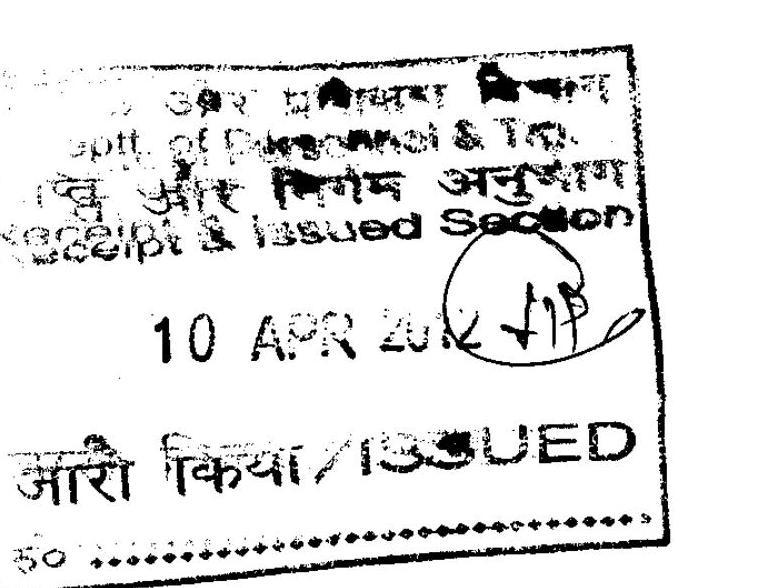 और प्रशिक्षण विभाग
Deptt. of Personnel & Trg.
और निर्गम अनुभाग
Receipt & Issued Section
10 APR 2012
जारी किया / ISSUED
ह०